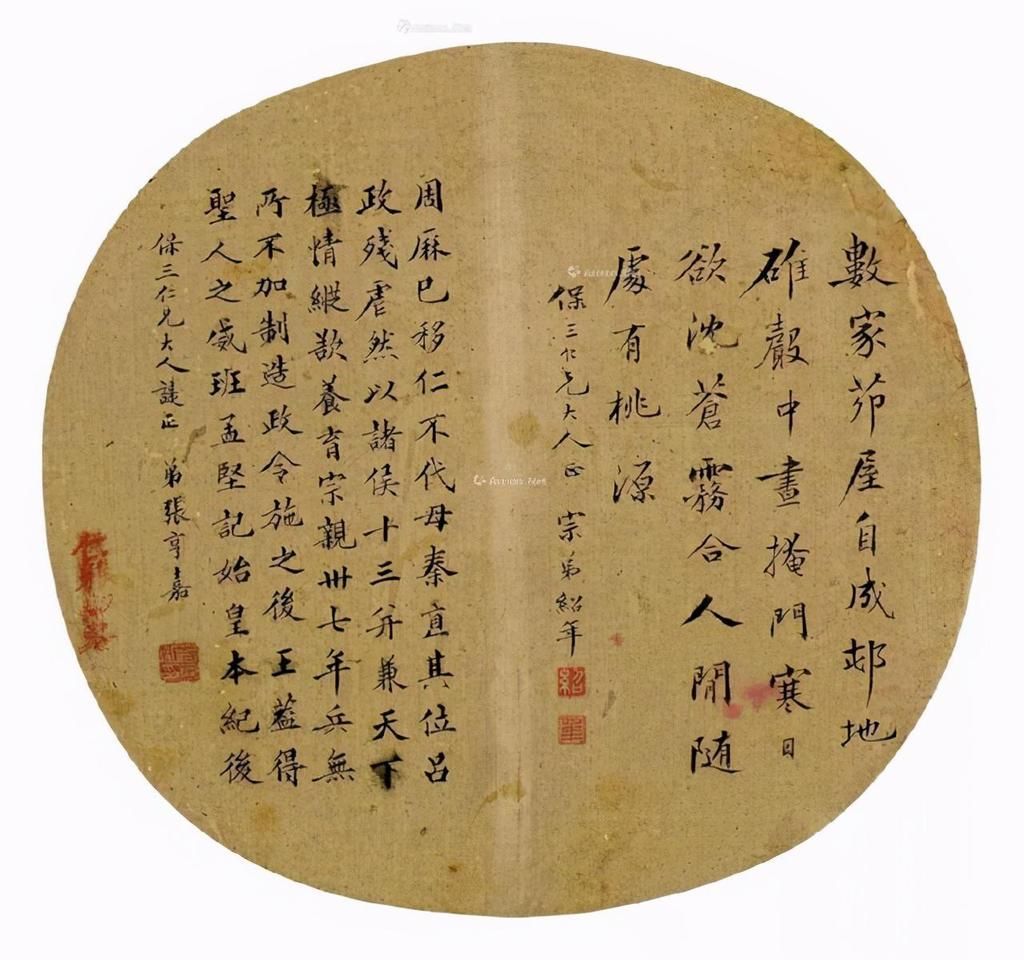 數家茆屋自成邨地
碓聲中晝掩門寒日
欲沈蒼霧合人閒隨
處有桃源
保三仁兄大人正 宗弟紹年
周厤已移仁不代母秦直其位呂
政殘虐然以諸侯十三并兼天下
極情縱欲養育宗親卅七年兵無
所不加制造政令施之後王葢得
聖人之威班孟堅記始皇本紀後
保三仁兄大人諟正 弟張亨嘉